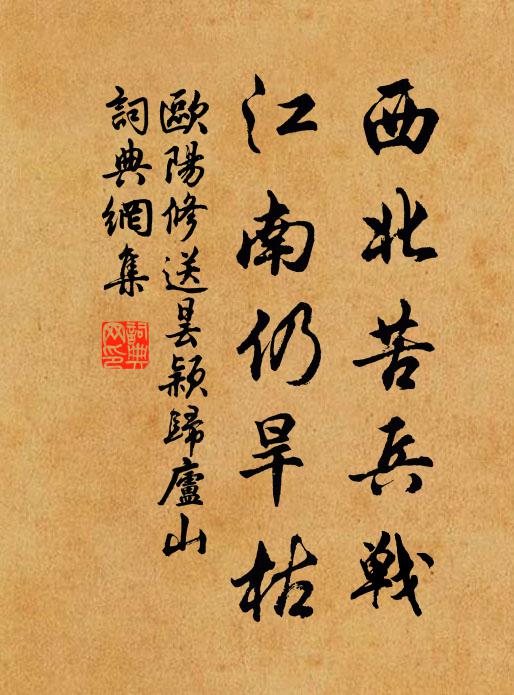 西北苦兵戰
江南仍旱枯
歐陽修送曇穎歸廬山
詞典網集
詞典网印